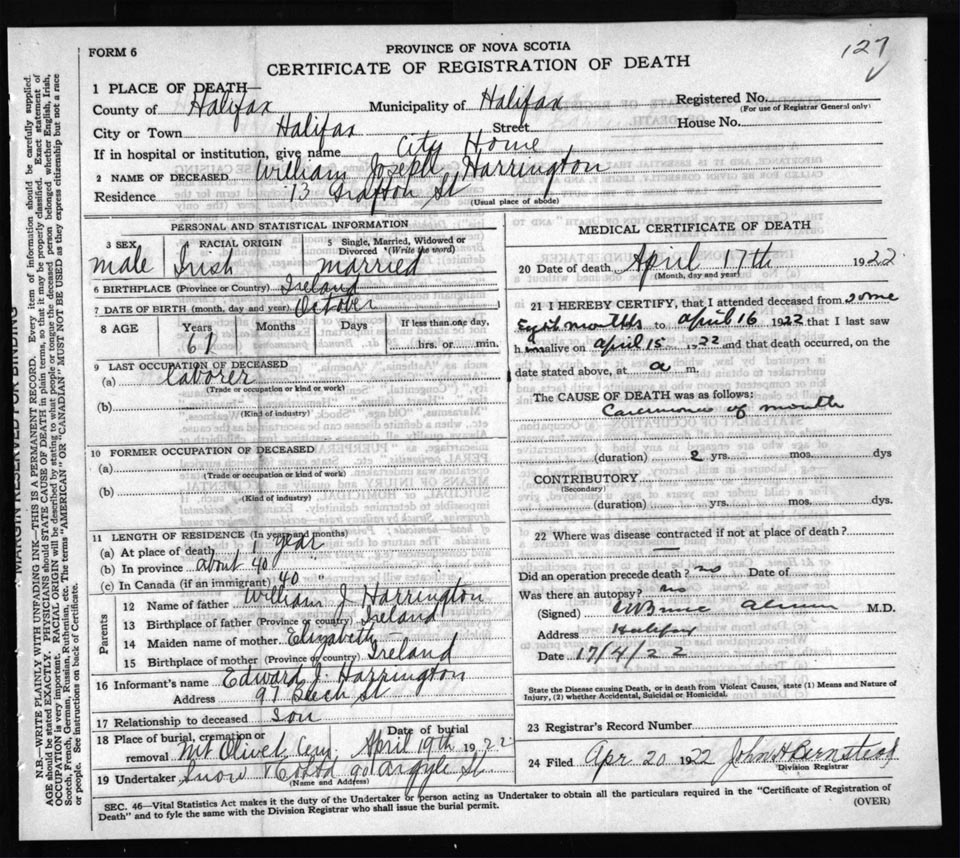 127
FORM 6
PROVINCE OF NOVA SCOTIA
CERTIFICATE OF REGISTRATION OF DEATH
1 PLACE OF DEATH—
County of Halifax Municipality of Halifax Registered No.
(For use of Registrar General only)
City or Town Halifax Street House No.
If in hospital or institution, give name City Home
2 NAME OF DECEASED William Joseph Harrington
Residence 13 Grafton St
(Usual place of abode)
PERSONAL AND STATISTICAL INFORMATION
3 SEX RACIAL ORIGIN 5 Single, Married, Widowed or Divorced (Write the word)
male Irish married
6 BIRTHPLACE (Province or Country) Ireland
7 DATE OF BIRTH (month, day and year) October
8 AGE Years Months Days If less than one day,
67 hrs. or min.
9 LAST OCCUPATION OF DECEASED
(a) laborer
(Trade or occupation or kind or work)
(b)
(Kind of industry)
10 FORMER OCCUPATION OF DECEASED
(a)
(Trade or occupation or kind of work)
(b)
(Kind of industry)
11 LENGTH OF RESIDENCE (In years and months)
(a) At place of death 1 year
(b) In province about 40 "
(c) In Canada (if an immigrant) 40 "
Parents
12 Name of father William J Harrington
13 Birthplace of father (Province or country) Ireland
14 Maiden name of mother Elizabeth
15 Birthplace of mother (Province or country) Ireland
16 Informant's name Edward J. Harrington
Address 97 Beech St
17 Relationship to deceased Son
18 Place of burial, cremation or removal Mt Olivet Cem. Date of burial April 19th 1922
19 Undertaker Snow & Co Ltd 90 Argyle St
(Name and Address)
MEDICAL CERTIFICATE OF DEATH
20 Date of death April 17th 1922
(Month, day and year)
21 I HEREBY CERTIFY, that I attended deceased from some
Eight months to april 16 1922 that I last saw
h im alive on april 15 1922 and that death occurred, on the
date stated above, at a m.
The CAUSE OF DEATH was as follows:
Carcinoma of mouth
(duration) 2 yrs. mos. dys
CONTRIBUTORY
(Secondary)
(duration) yrs. mos. dys
22 Where was disease contracted if not at place of death?
—
Did an operation precede death? no Date of
Was there an autopsy? no
(Signed) M.D.
Address Halifax
Date 17/4/22
State the Disease causing Death, or in death from Violent Causes, state (1) Means and Nature of
Injury, (2) whether Accidental, Suicidal or Homicidal.
23 Registrar's Record Number
24 Filed Apr 20 1922 John H Bernstead
Division Registrar
SEC. 46—Vital Statistics Act makes it the duty of the Undertaker or person acting as Undertaker to obtain all the particulars required in the "Certificate of Registration of
Death" and to fyle the same with the Division Registrar who shall issue the burial permit.
(OVER)
MARGIN RESERVED FOR BINDING
N.B.—WRITE PLAINLY WITH UNFADING INK—THIS IS A PERMANENT RECORD. Every item of information should be carefully supplied.
AGE should be stated EXACTLY. PHYSICIANS should STATE CAUSE OF DEATH in plain terms, so that it may be properly classified. Exact statement of
OCCUPATION is very important. RACIAL ORIGIN will be described by stating to what people or tongue the deceased person belonged whether English, Irish,
Scotch, French, German, Russian, Ruthenian, etc. The terms "AMERICAN" or "CANADIAN" MUST NOT BE USED as they express citizenship but not a race
or people. See instructions on back of Certificate.